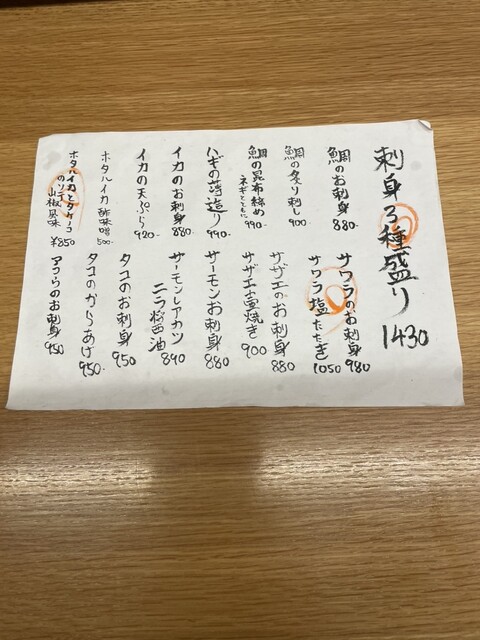 刺身3種盛り 1430
鯛のお刺身 880
鯛の炙り刺し 900
鯛の昆布締め
ネギとともに 990-
ハギの薄造り 990-
イカのお刺身 880-
イカの天ぷら 920-
ホタルイカ酢味噌 500-
ホタルイカとタケノコ
のソテー
山椒風味 ¥850
サワラのお刺身 980
サワラ塩たたき 1050
サザエのお刺身 880
サザエ壷焼き 900
サーモンお刺身 880
サーモンレアカツ
ニラ醤油 890
タコのお刺身 950
タコのからあげ 950-
アコウのお刺身 950